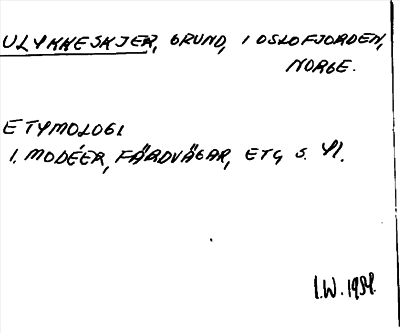 ULYKKESKJER, GRUND, I OSLOFJORDEN,
NORGE.
ETYMOLOGI
I. MODÉER, FÄRDVÄGAR, ETC, S. 41.
I.W. 1954.